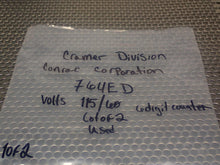 Cramer Division
Conrac Corporation
764ED
Volts 115/60 6 digit counter
Lot of 2
Used
1 of 2